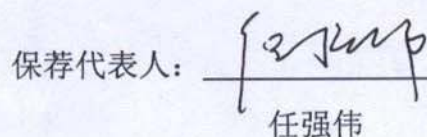 保荐代表人：任强伟
任强伟